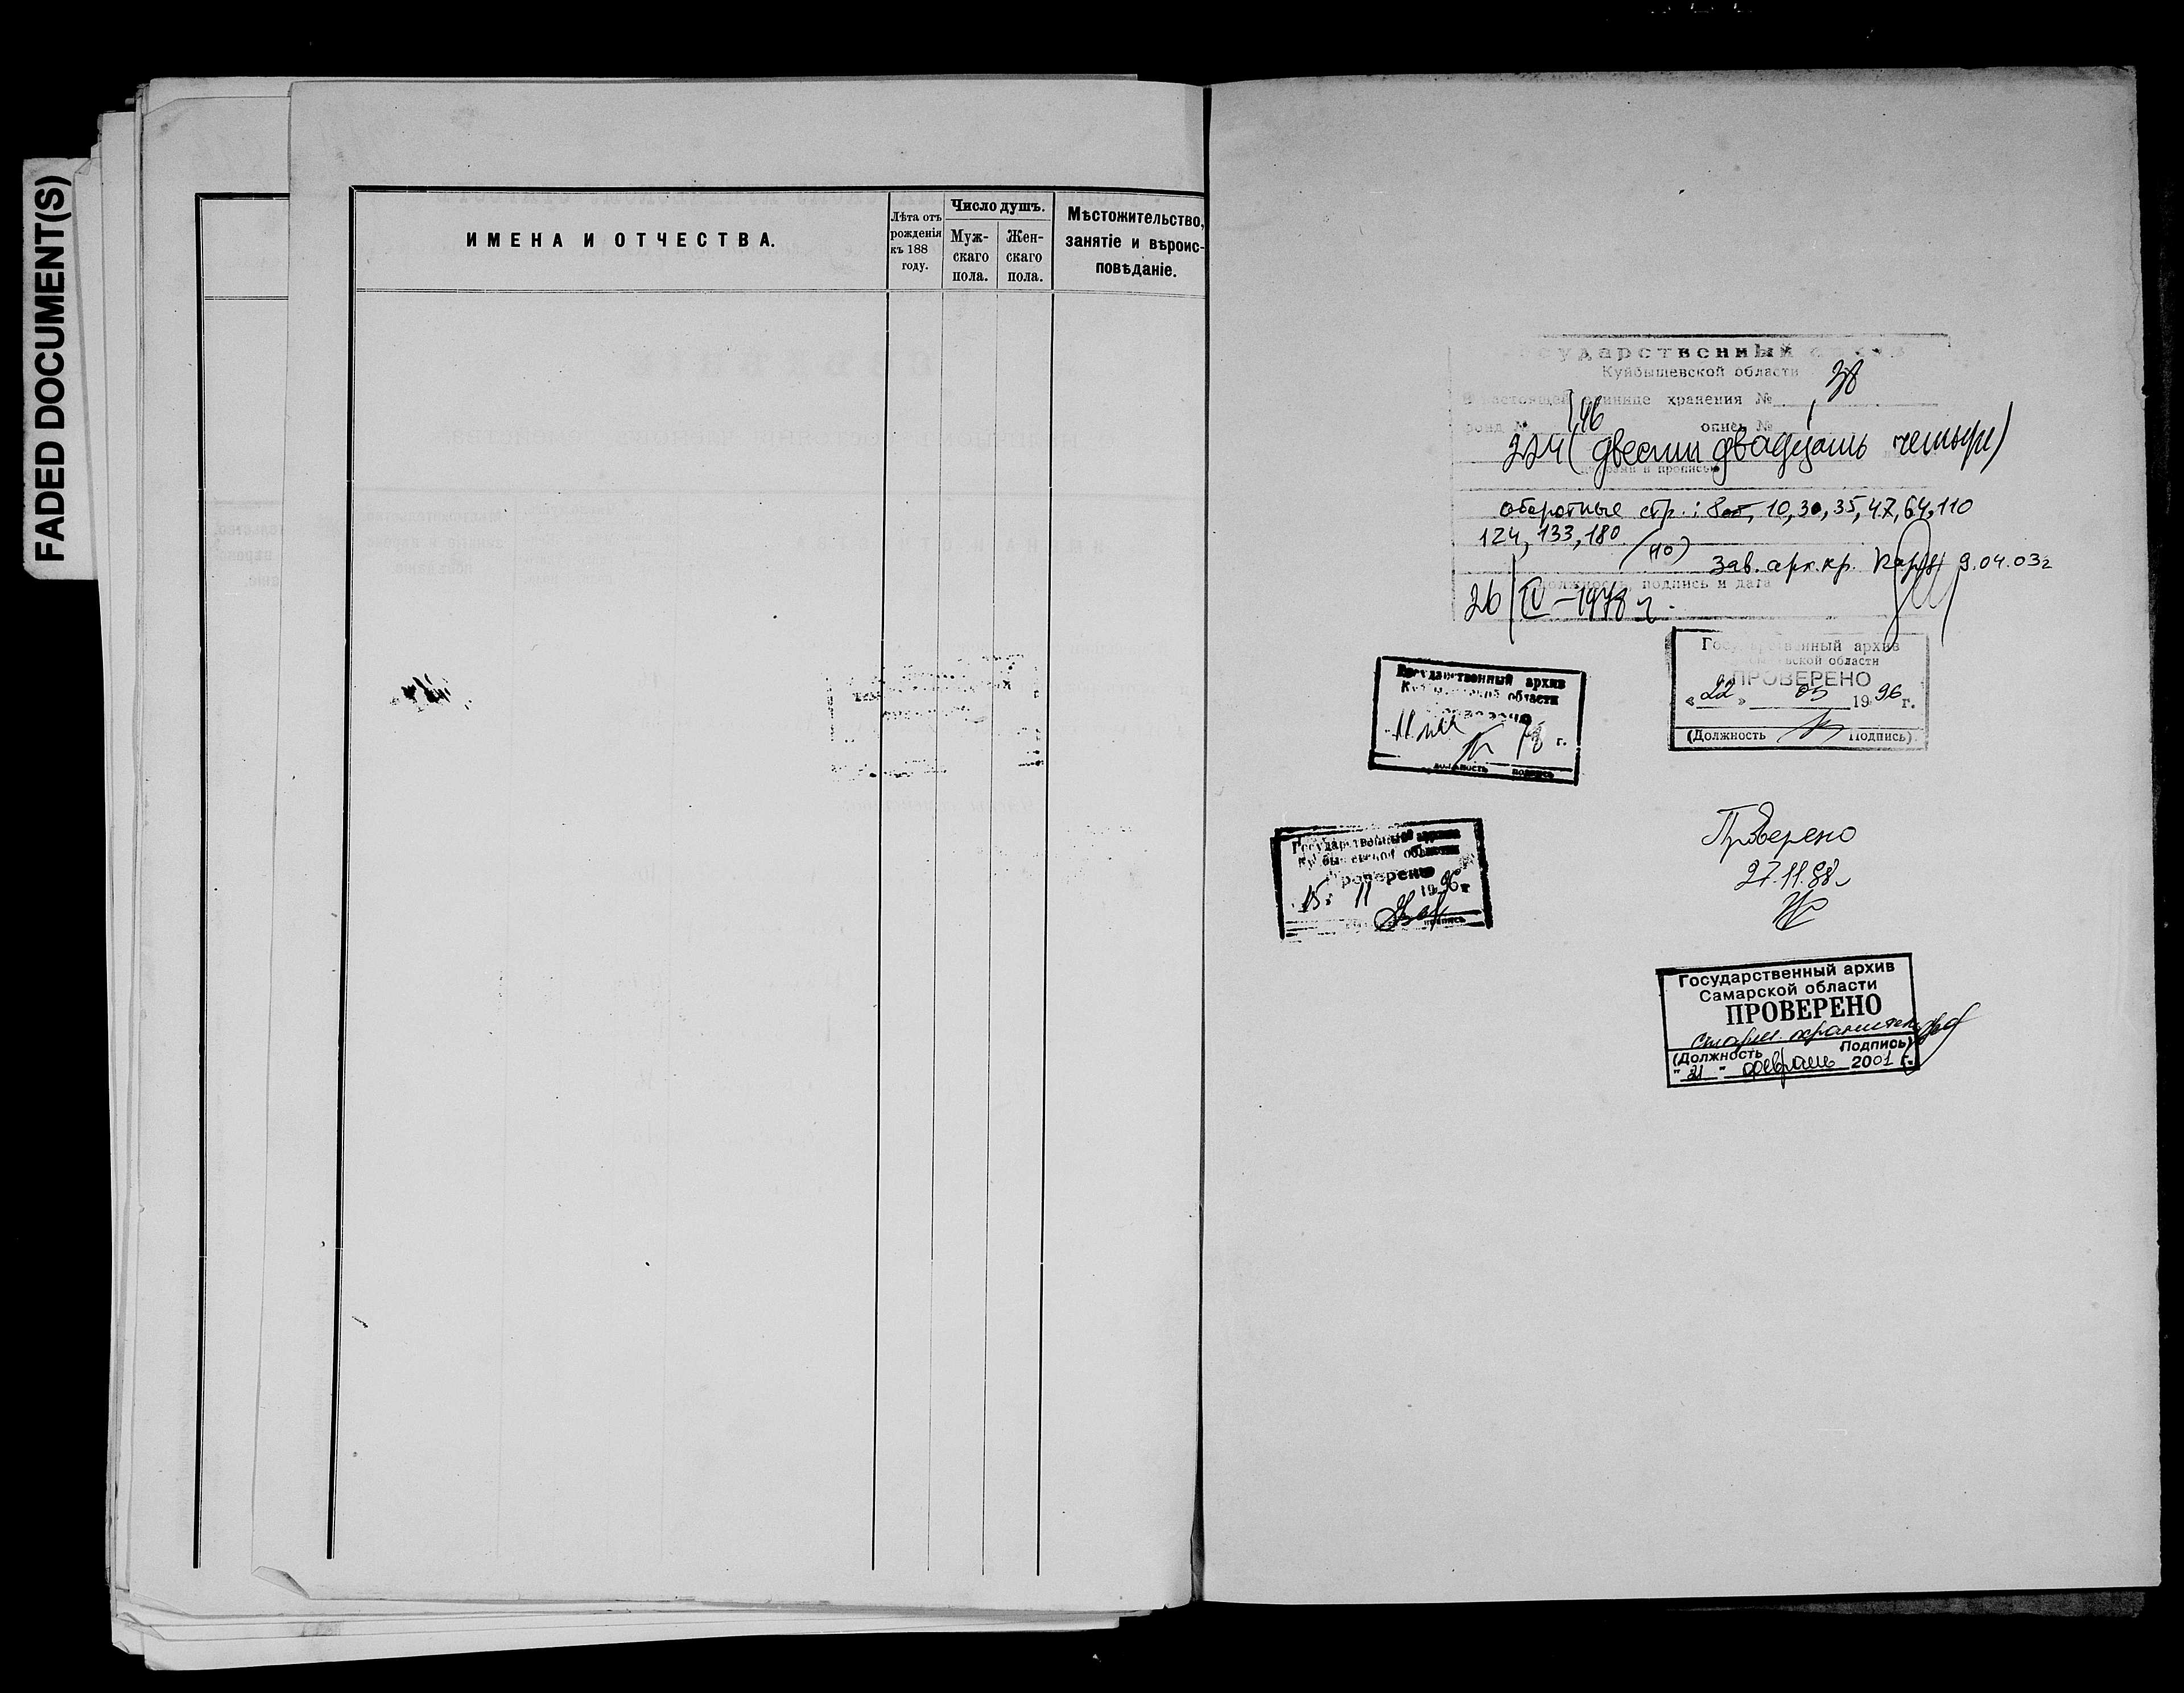 FADED DOCUMENT(S)
ИМЕНА И ОТЧЕСТВА.
Лѣта отъ
рожденія
къ 188
году.
Число душъ.
Муж-
скаго
пола.
Жен-
скаго
пола.
Мѣстожительство,
занятіе и вѣроис-
повѣданіе.
Государственный архив
Куйбышевской области
В настоящей единице хранения № 38
фонд № 146 опись № 1
224 (двести двадцать четыре)
цифрами и прописью
оборотные стр.: 8об, 10, 30, 35, 47, 64, 110
124, 133, 180. (10)
Зав. арх.хр. 9.04.03г
должность, подпись и дата
26/IV-1978 г.
Государственный архив
Куйбышевской области
Проверено
г.
должность подпись
Государственный архив
ской области
ПРОВЕРЕНО
«22» 03 1996 г.
(Должность Подпись)
Государственный архив
Куйбышевской области
Проверено
15. 11 1996 г
подпись
Проверено
27.11.88
Государственный архив
Самарской области
ПРОВЕРЕНО
старш. хранитель
(Должность Подпись)
"21" февраль 2001 г.